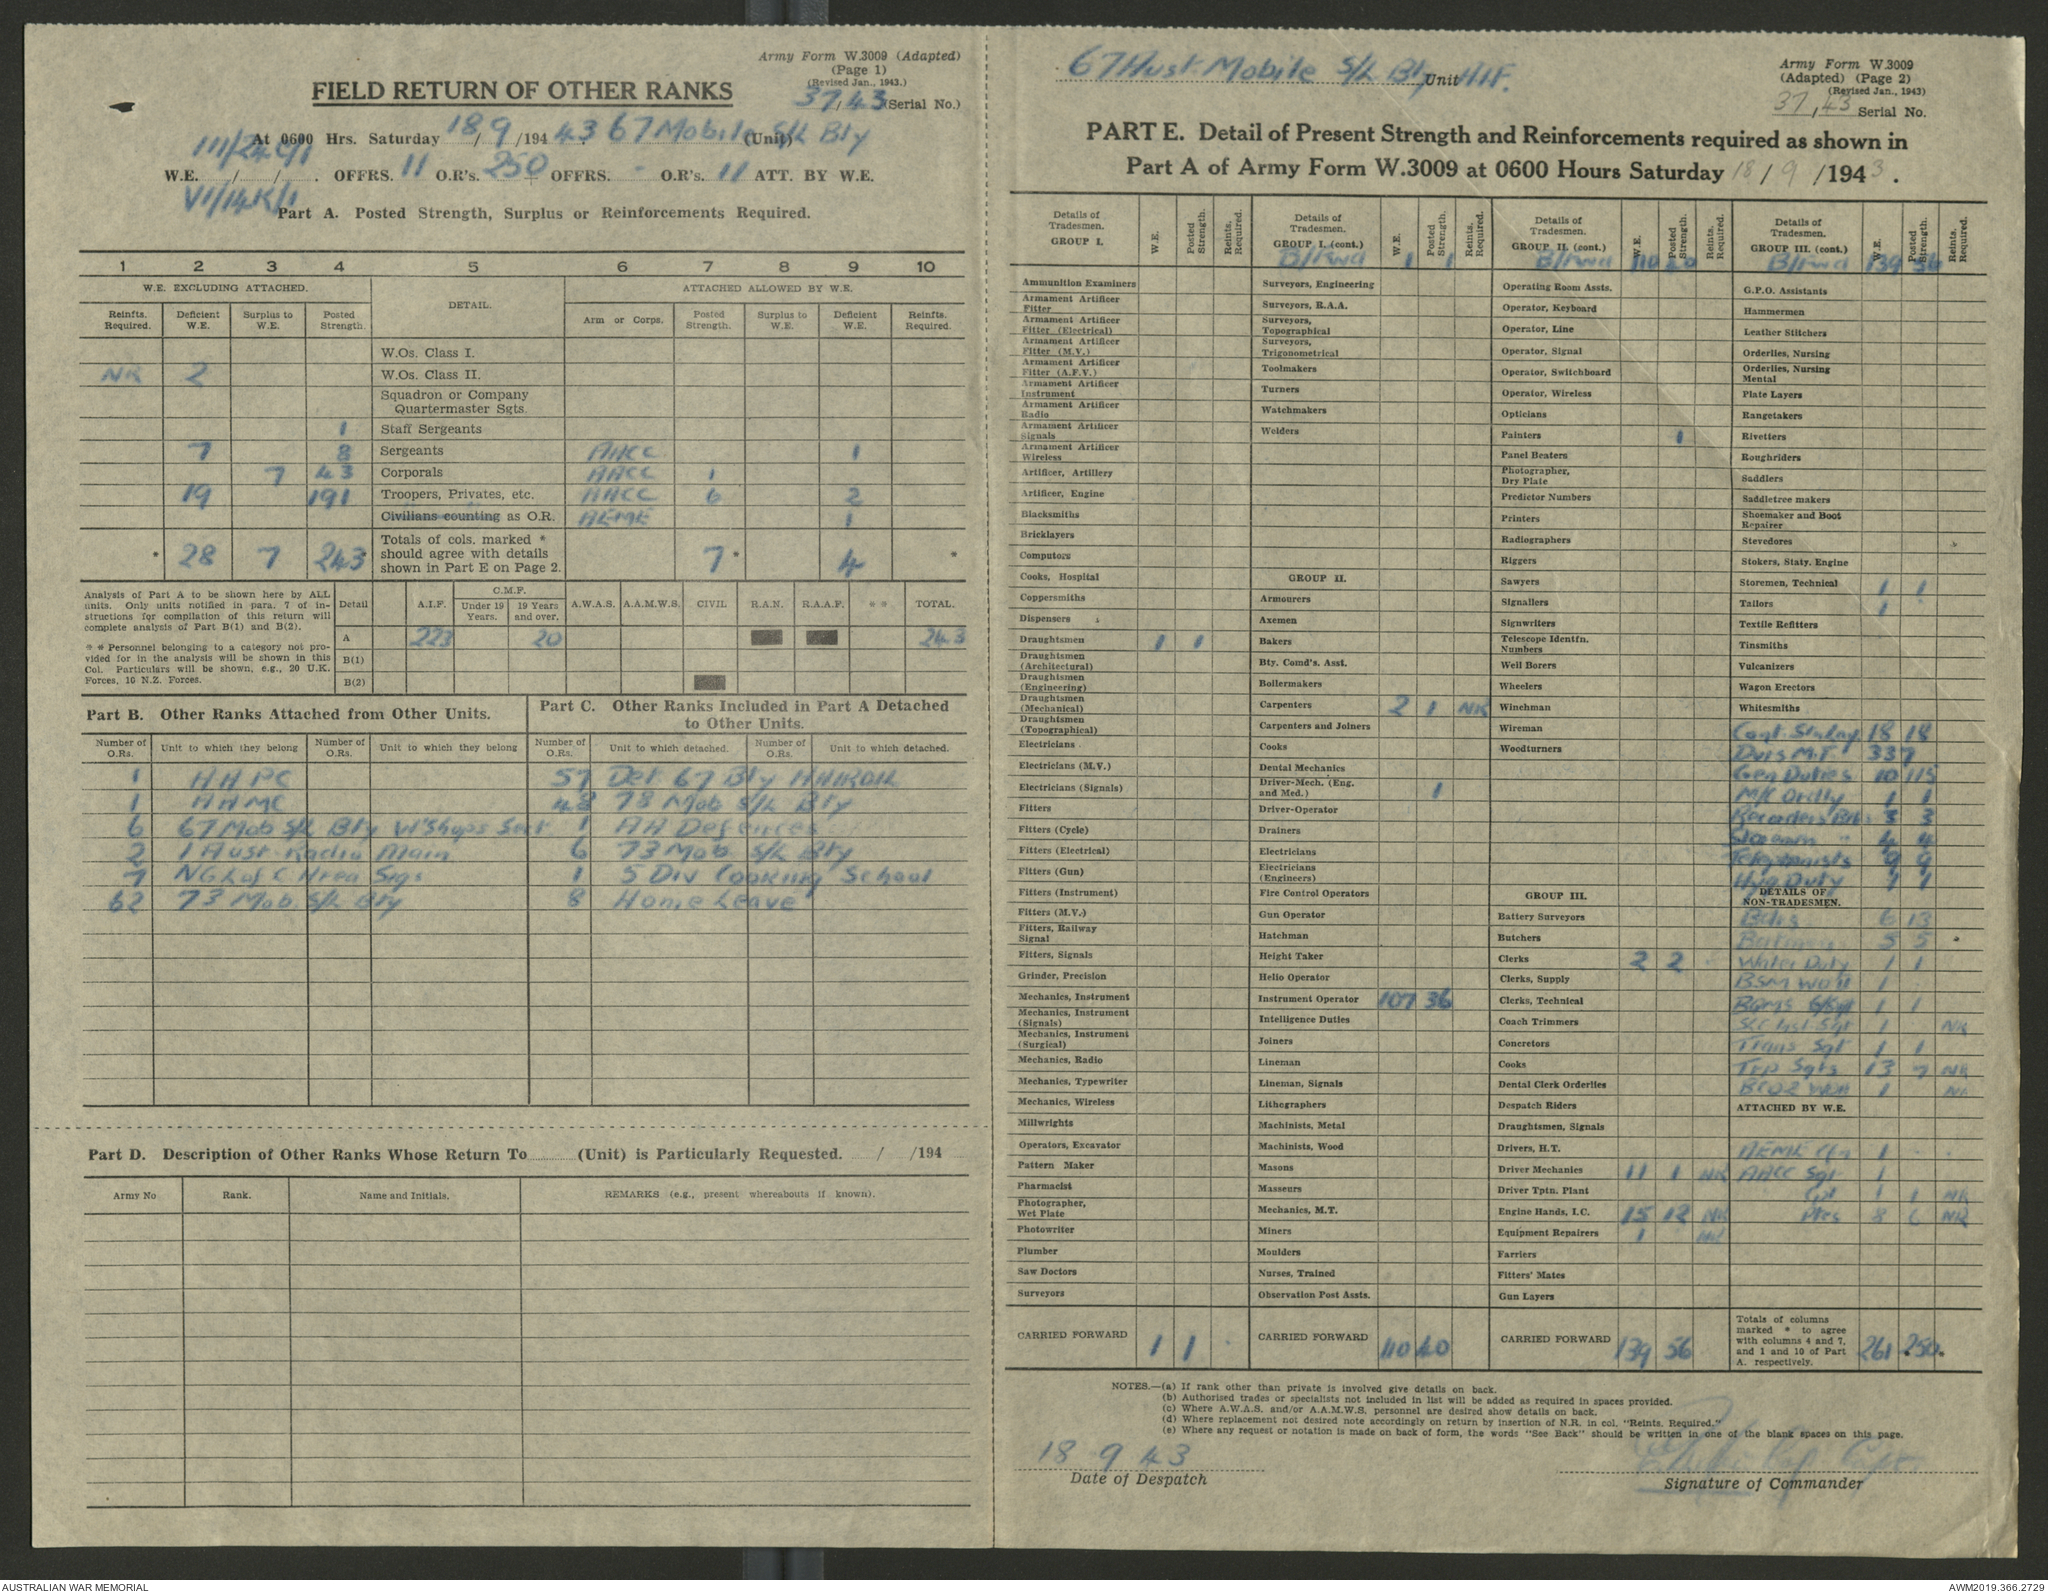 Army Form W.3009 (Adapted)
(Page 1)
(Revised Jan., 1943.)
FIELD RETURN OF OTHER RANKS
37/43 (Serial No.)
At 0600 Hrs. Saturday 18/9/1943 67 Mobile S/L Bty (Unit)
III/24C/1
W.E. / / . OFFRS. 11 O.R's. 250 + OFFRS. - O.R's. 11 ATT. BY W.E.
VI/14K/1
Part A. Posted Strength, Surplus or Reinforcements Required.
1 2 3 4 5 6 7 8 9 10
W.E. EXCLUDING ATTACHED. DETAIL. ATTACHED ALLOWED BY W.E.
Reinfts. Required. Deficient W.E. Surplus to W.E. Posted Strength. Arm or Corps. Posted Strength. Surplus to W.E. Deficient W.E. Reinfts. Required.
W.Os. Class I.
NR 2 W.Os. Class II.
Squadron or Company
Quartermaster Sgts.
1 Staff Sergeants
7 8 Sergeants AACC 1
7 43 Corporals AACC 1
19 191 Troopers, Privates, etc. AACC 6 2
Civilians counting as O.R. AEME 1
* 28 7 243 Totals of cols. marked * should agree with details shown in Part E on Page 2. 7 * 4 *
Analysis of Part A to be shown here by ALL units. Only units notified in para. 7 of instructions for compilation of this return will complete analysis of Part B(1) and B(2).
* * Personnel belonging to a category not provided for in the analysis will be shown in this Col. Particulars will be shown, e.g., 20 U.K. Forces, 10 N.Z. Forces.
Detail A.I.F. C.M.F. Under 19 Years. 19 Years and over. A.W.A.S. A.A.M.W.S. CIVIL R.A.N. R.A.A.F. * * TOTAL.
A 223 20 243
B(1)
B(2)
Part B. Other Ranks Attached from Other Units.
Part C. Other Ranks Included in Part A Detached to Other Units.
Number of O.Rs. Unit to which they belong Number of O.Rs. Unit to which they belong Number of O.Rs. Unit to which detached. Number of O.Rs. Unit to which detached.
1 AAPC 57 Det 67 Bty
1 AAMC 48 78 Mob S/L Bty
6 67 Mob S/L Bty W'Shops Sect 1 AA Defences
2 1 Aust Radio Main 6 73 Mob. S/L Bty
7 NG L of C Area Sigs 1 5 Div Cooking School
62 73 Mob. S/L Bty 8 Home Leave
Part D. Description of Other Ranks Whose Return To (Unit) is Particularly Requested. / /194
Army No Rank. Name and Initials. REMARKS (e.g., present whereabouts if known).
67 Aust Mobile S/L Bty, Unit AIF.
Army Form W.3009
(Adapted) (Page 2)
(Revised Jan., 1943)
37/43 Serial No.
PART E. Detail of Present Strength and Reinforcements required as shown in
Part A of Army Form W.3009 at 0600 Hours Saturday 18/9/1943.
Details of Tradesmen. GROUP I. W.E. Posted Strength. Reints. Required.
Ammunition Examiners
Armament Artificer Fitter
Armament Artificer Fitter (Electrical)
Armament Artificer Fitter (M.V.)
Armament Artificer Fitter (A.F.V.)
Armament Artificer Instrument
Armament Artificer Radio
Armament Artificer Signals
Armament Artificer Wireless
Artificer, Artillery
Artificer, Engine
Blacksmiths
Bricklayers
Computors
Cooks, Hospital
Coppersmiths
Dispensers
Draughtsmen 1 1
Draughtsmen (Architectural)
Draughtsmen (Engineering)
Draughtsmen (Mechanical)
Draughtsmen (Topographical)
Electricians
Electricians (M.V.)
Electricians (Signals)
Fitters
Fitters (Cycle)
Fitters (Electrical)
Fitters (Gun)
Fitters (Instrument)
Fitters (M.V.)
Fitters, Railway Signal
Fitters, Signals
Grinder, Precision
Mechanics, Instrument
Mechanics, Instrument (Signals)
Mechanics, Instrument (Surgical)
Mechanics, Radio
Mechanics, Typewriter
Mechanics, Wireless
Millwrights
Operators, Excavator
Pattern Maker
Pharmacist
Photographer, Wet Plate
Photowriter
Plumber
Saw Doctors
Surveyors
CARRIED FORWARD 1 1
Details of Tradesmen. GROUP I. (cont.) W.E. Posted Strength. Reints. Required.
B/Fwd 1 1
Surveyors, Engineering
Surveyors, R.A.A.
Surveyors, Topographical
Surveyors, Trigonometrical
Toolmakers
Turners
Watchmakers
Welders
GROUP II.
Armourers
Axemen
Bakers
Bty. Comd's. Asst.
Boilermakers
Carpenters 2 1 NR
Carpenters and Joiners
Cooks
Dental Mechanics
Driver-Mech. (Eng. and Med.) 1
Driver-Operator
Drainers
Electricians
Electricians (Engineers)
Fire Control Operators
Gun Operator
Hatchman
Height Taker
Helio Operator
Instrument Operator 107 36
Intelligence Duties
Joiners
Lineman
Lineman, Signals
Lithographers
Machinists, Metal
Machinists, Wood
Masons
Masseurs
Mechanics, M.T.
Miners
Moulders
Nurses, Trained
Observation Post Assts.
CARRIED FORWARD 110 40
Details of Tradesmen. GROUP II. (cont.) W.E. Posted Strength. Reints. Required.
B/Fwd 110 40
Operating Room Assts.
Operator, Keyboard
Operator, Line
Operator, Signal
Operator, Switchboard
Operator, Wireless
Opticians
Painters 1
Panel Beaters
Photographer, Dry Plate
Predictor Numbers
Printers
Radiographers
Riggers
Sawyers
Signallers
Signwriters
Telescope Identfn. Numbers
Well Borers
Wheelers
Winchman
Wireman
Woodturners
GROUP III.
Battery Surveyors
Butchers
Clerks 2 2
Clerks, Supply
Clerks, Technical
Coach Trimmers
Concretors
Cooks
Dental Clerk Orderlies
Despatch Riders
Draughtsmen, Signals
Drivers, H.T.
Driver Mechanics 11 1 NR
Driver Tptn. Plant
Engine Hands, I.C. 15 12 NR
Equipment Repairers 1 NR
Farriers
Fitters' Mates
Gun Layers
CARRIED FORWARD 139 56
Details of Tradesmen. GROUP III. (cont.) W.E. Posted Strength. Reints. Required.
B/Fwd 139 56
G.P.O. Assistants
Hammermen
Leather Stitchers
Orderlies, Nursing
Orderlies, Nursing Mental
Plate Layers
Rangetakers
Rivetters
Roughriders
Saddlers
Saddletree makers
Shoemaker and Boot Repairer
Stevedores
Stokers, Staty. Engine
Storemen, Technical 1 1
Tailors 1
Textile Refitters
Tinsmiths
Vulcanizers
Wagon Erectors
Whitesmiths
18 18
Dvrs M.T. 33 7
Gen Duties 10 115
M/C Ordly 1 1
Recorders 3 3
Storemn 4 4
Telephonists 9 9
Hyg Duty 1 1
DETAILS OF NON-TRADESMEN.
Bdrs 6 13
Batmen 5 5 *
Water Duty 1 1
BSM WO II 1
BQMS S/Sgt 1 1
Sgt 1 NR
Trans Sgt 1 1
Trp Sgts 13 7 NR
1 NR
ATTACHED BY W.E.
AEME 1
AACC Sgt 1
Cpl 1 1 NR
Ptes 8 6 NR
Totals of columns marked * to agree with columns 4 and 7, and 1 and 10 of Part A. respectively. 261 250
NOTES.—(a) If rank other than private is involved give details on back.
(b) Authorised trades or specialists not included in list will be added as required in spaces provided.
(c) Where A.W.A.S. and/or A.A.M.W.S. personnel are desired show details on back.
(d) Where replacement not desired note accordingly on return by insertion of N.R. in col. "Reints. Required."
(e) Where any request or notation is made on back of form, the words "See Back" should be written in one of the blank spaces on this page.
18 9 43
Date of Despatch
Signature of Commander
AUSTRALIAN WAR MEMORIAL
AWM2019.366.2729